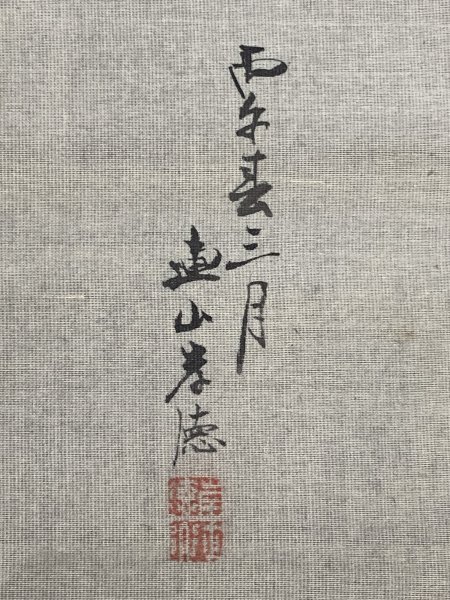 丙午春三月
畫山孝德